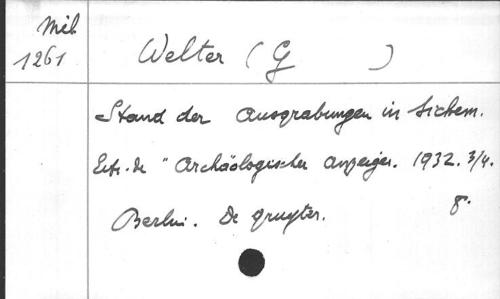 Mél
1261
Welter (G )
Stand der Ausgrabungen in Sichem.
Extr. de "Archäologischer Anzeiger. 1932. 3/4.
Berlin. De Gruyter. 8°